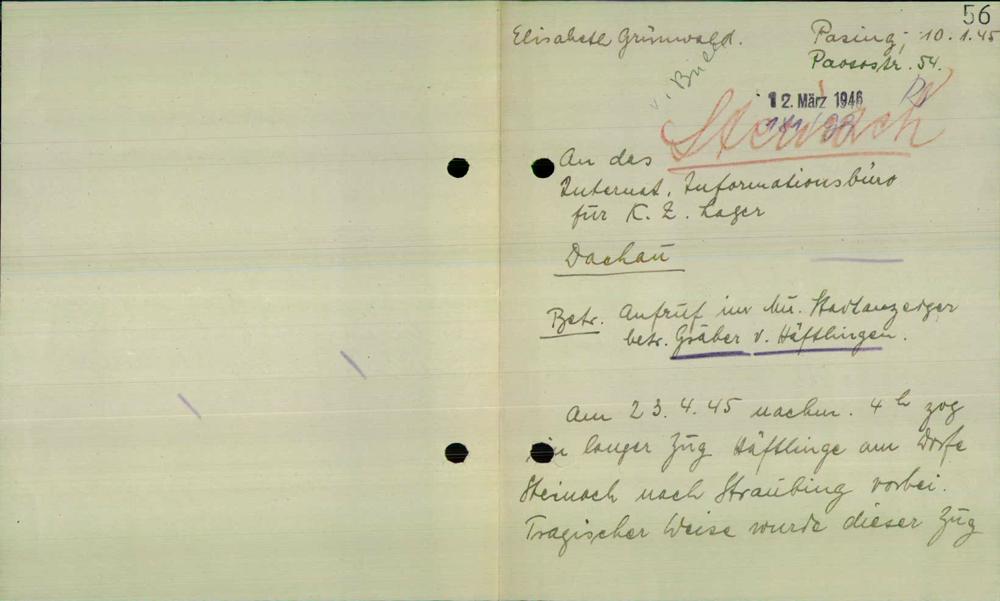 56
Elisabeth Grünwald.
Pasing, 10.1.45
Paosostr. 54.
v. Brief
12. März 1946
Steinach
An das
Internat. Informationsbüro
für K. Z. Lager
Dachau
Betr. Aufruf im Mü. Stadtanzeiger
betr. Gräber v. Häftlingen.
Am 23.4.45 nachm. 4 h zog
ein langer Zug Häftlinge am Dorfe
Steinach nach Straubing vorbei.
Tragischer Weise wurde dieser Zug